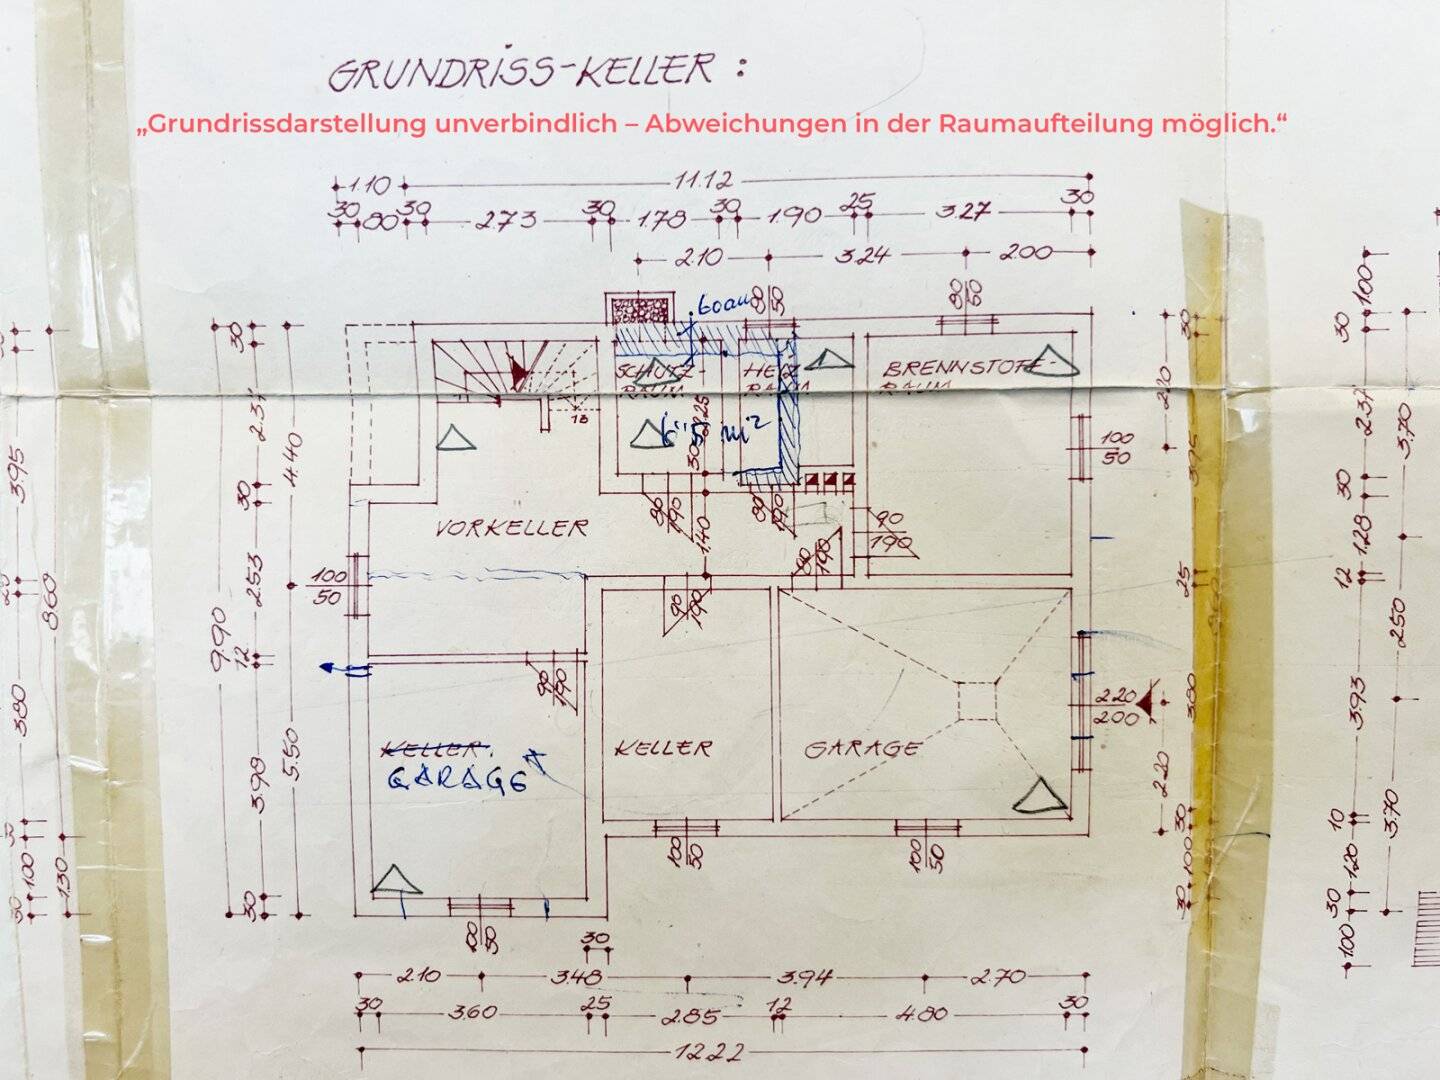 GRUNDRISS-KELLER :
„Grundrissdarstellung unverbindlich – Abweichungen in der Raumaufteilung möglich.“
1.10 11.12
30 80 30 2.73 30 1.78 30 1.90 25 3.27 30
2.10 3.24 2.00
80 50
80 50
SCHUTZ-
RAUM
HEIZ
RAUM
BRENNSTOFF-
RAUM
18
m²
VORKELLER
100
50
100
50
90 190
80 190
80 190
90
190
90 190
90 190
1.40
KELLER
GARAGE
KELLER
GARAGE
220
200
100 50
100 50
100 50
30
2.10 3.48 3.94 2.70
30 3.60 25 2.85 12 4.80 30
12.22
9.90
30 2.37 30 2.53 12 3.98 30
4.40 5.50
3.95 3.80
8.60
30 1.00 1.30
30 3.95 25 3.80 30 1.00 30
2.20 2.20
1.00 30 2.37 30 1.28 12 3.93 10 1.20 30 1.00
3.70 250 3.70